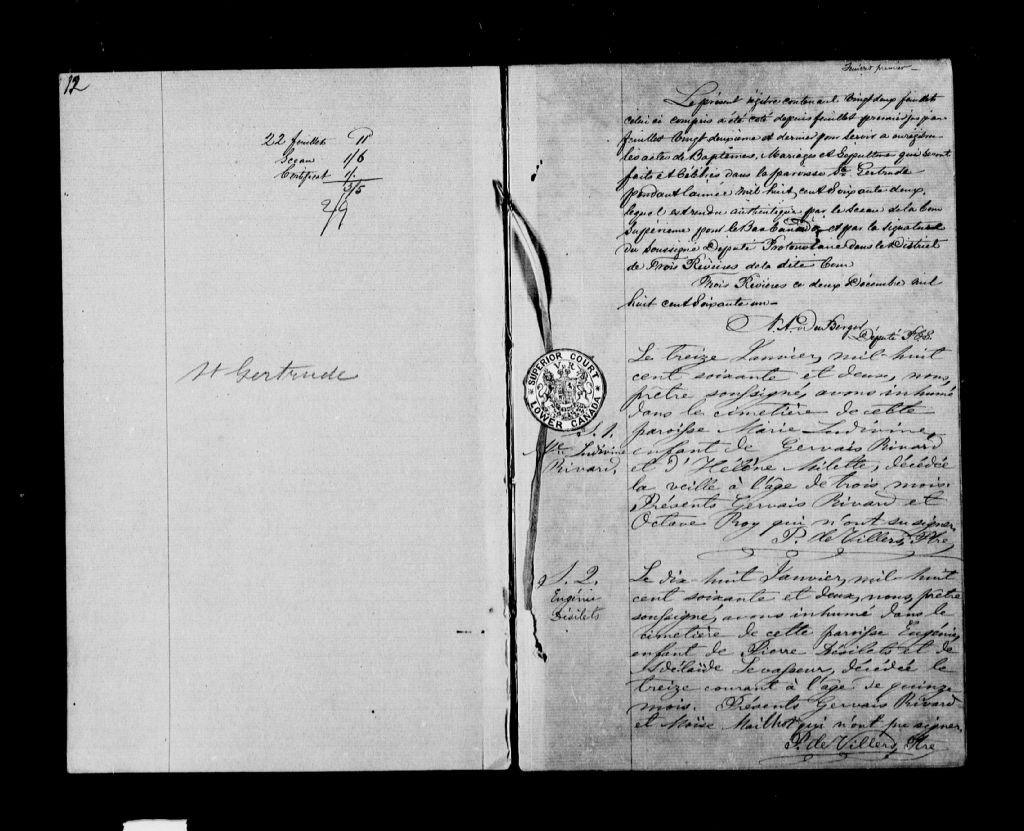 12
22 feuillets
Sceau 1/6
Certificat 1/.
3/5
St Gertrude
Feuillet premier
Le présent régistre contenant Vingt deux feuillets
celui ci compris a été coté depuis feuillet premier jusqu'au
feuillet Vingt deuxième et dernier pour servir a enrégistrer
les actes de Baptêmes, Mariages et Sepultures qui seront
faits et Célébrés dans la paroisse Ste Gertrude
pendant l'année mil huit cent Soixante deux,
lequel est rendu authentique par le Sceau de la Cour
Supérieure pour le Bas Canada, et par la signature
du Soussigné Député Protonotaire dans le District
de Trois Rivières de la dite Cour
Trois Rivières ce deux Décembre mil
huit cent Soixante un
Député P.C.S.
SUPERIOR COURT
LOWER CANADA
S. 1.
Mie Ludivine
Rivard,
Le treize Janvier, mil-huit
cent soixante et deux, nous,
prêtre soussigné, avons inhumé
dans le cimetière de cette
paroisse Marie Ludivine,
enfant de Gervais Rivard
et d'Hélène Milette, décédée
la veille à l'âge de trois mois.
Présents Gervais Rivard et
Octave Roy qui n'ont su signer.
P. de Villers, Ptre
S. 2.
Eugénie
Désilets
Le dix-huit Janvier, mil-huit
cent soixante et deux, nous, prêtre
soussigné, avons inhumé dans le
cimetière de cette paroisse Eugénie,
enfant de Pierre Désilets et de
Adélaïde Levasseur, décédée le
treize courant à l'âge de quinze
mois. Présents Gervais Rivard
et Moïse Mailhot qui n'ont pu signer.
P. de Villers, Ptre